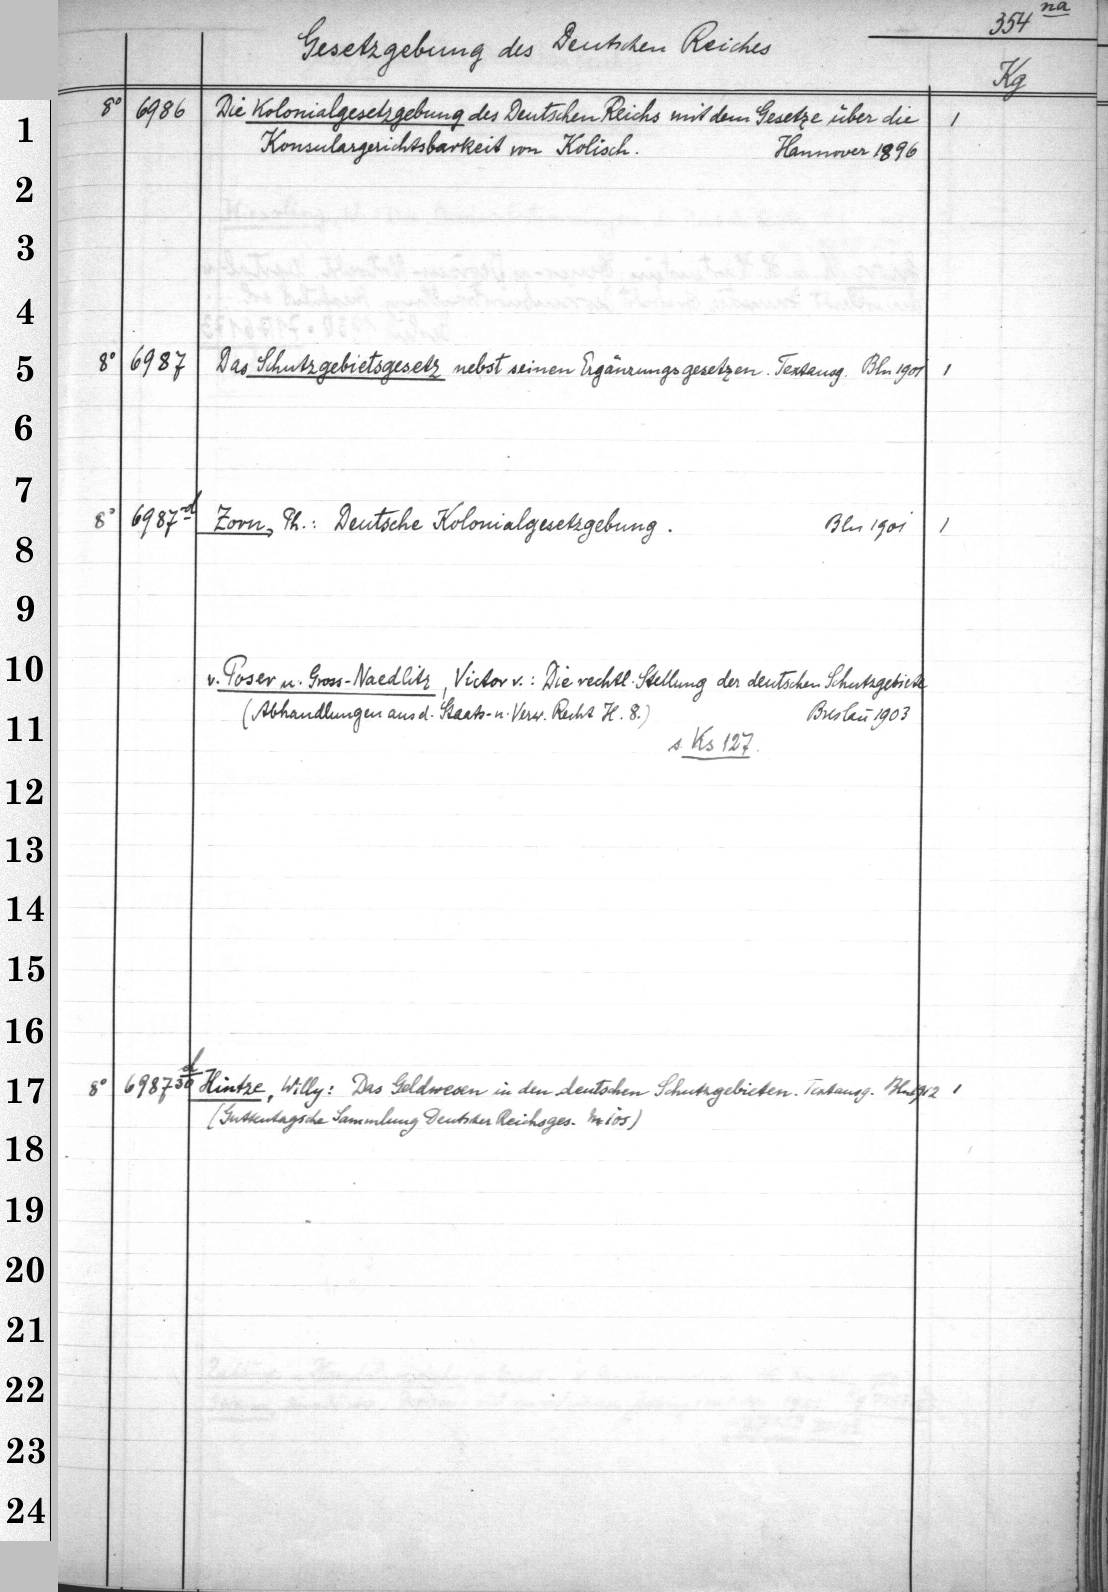 354 na
Gesetzgebung des Deutschen Reiches
Kg
8° 6986 Die Kolonialgesetzgebung des Deutschen Reichs mit dem Gesetze über die 1
Konsulargerichtsbarkeit von Kolisch. Hannover 1896
8° 6987 Das Schutzgebietsgesetz nebst seinen Ergänzungsgesetzen. Textausg. Bln 1901 1
8° 6987 d Zorn, Ph.: Deutsche Kolonialgesetzgebung. Bln 1901 1
v. Poser u. Gross-Naedlitz, Victor v.: Die rechtl. Stellung der deutschen Schutzgebiete
(Abhandlungen aus d. Staats- u. Verw. Recht H. 8.) Breslau 1903
s. Ks 127.
8° 6987 d 30 Hintze, Willy: Das Geldwesen in den deutschen Schutzgebieten. Textausg. Bln 1912 1
(Guttentagsche Sammlung Deutscher Reichsges. Nr 105)
1
2
3
4
5
6
7
8
9
10
11
12
13
14
15
16
17
18
19
20
21
22
23
24